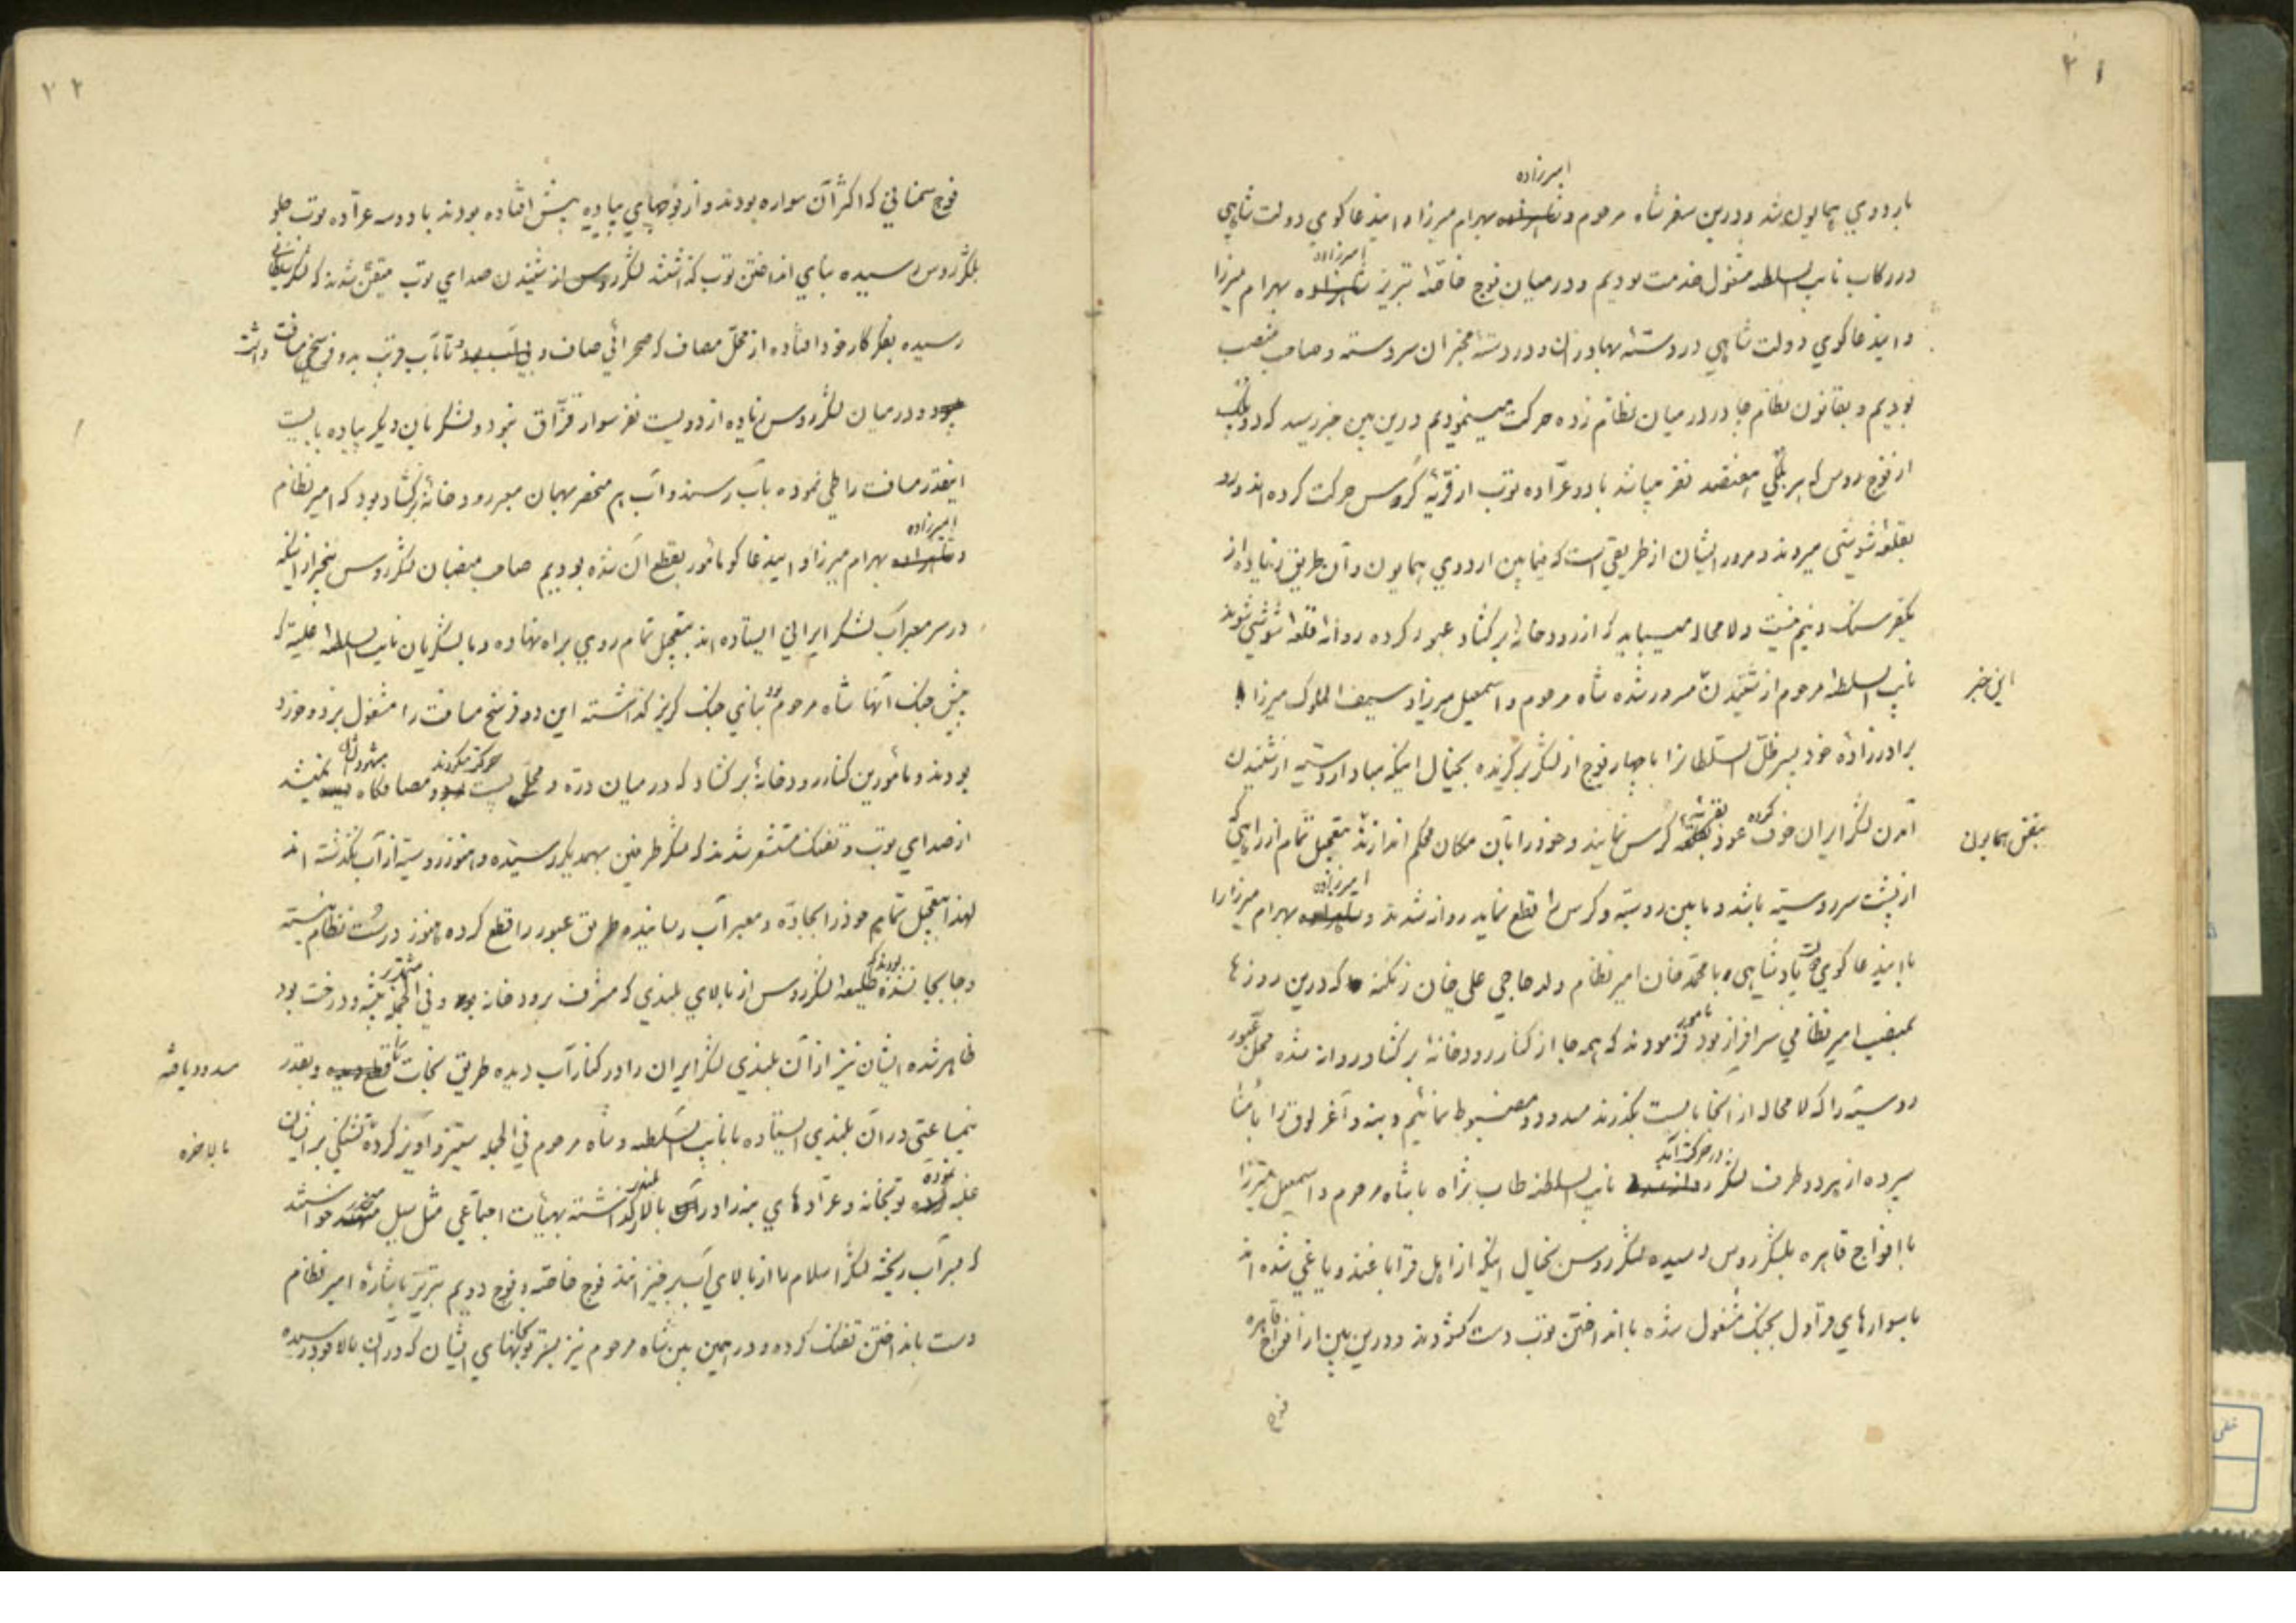 ۲۱
امیرزاده
باردوی همایون شد و درین سفر شاه مرحوم و شاهزاده بهرام میرزا و ایندعاکوی دولت شاهی
امیرزاده
در رکاب نایب السلطنه مشغول خدمت بودیم و در میان فوج خاصّهٔ تبریز شاهزاده بهرام میرزا
و ایندعاکوی دولت شاهی در دستهٔ بهادران و در دستهٔ مخبران سردسته و صاحب منصب
بودیم و بقانون نظام جا در در میان نظام زده حرکت مینمودیم درین بین خبر رسید که دو پلک
از فوج روس که هر پلکی هفتصد نفر میباشد با دو عرّاده توپ از قریهٔ کروس حرکت کرده اند و رو
بقلعهٔ شوشی میروند و مرور ایشان از طریقی است که فیمابین اردوی همایون و آن طریق زیاده از
یکفرسنک و نیم نیست و لامحاله میباید که از رودخانهٔ برکشاد عبور کرده روانهٔ قلعهٔ شوشی شوند
این خبر
نایب السلطنه مرحوم از شنیدن مسرور شده شاه مرحوم و اسمعیل میرزا و سیف الملوک میرزا
برادرزادهٔ خود پسر ظلّ السّلطانرا با چهار فوج از لشکر برکزیده بخیال اینکه مبادا روسیّه از شنیدن
بنفس همایون
کرده بقریهٔ
آمدن لشکر ایران خوف عود بقلعه کرس نمایند و خود را بآن مکان محکم اندازند بتعجیل تمام از راهی که
امیرزاده
از پشت سر روسیّه باشد و مابین روسیّه و کرس را قطع نماید روانه شدند و شاهزاده بهرام میرزا را
با ایندعاکوی دولت پادشاهی با محمّد خان امیر نظام ولد حاجی علی خان زنکنه که درین روزها
بمنصب امیر نظامی سرافراز بود مامور فرمودند که همه جا از کنار رودخانهٔ برکشاد روانه شده محلّ عبور
روسیّه را که لامحاله از آنجا بایست بگذرند مسدود و مضبوط نمائیم و بنه و آغرلوق را بامنا
در حرکت آمد
سپرده از هر دو طرف لشکر روانه شد نایب السلطنه طاب ثراه با شاه مرحوم و اسمعیل میرزا
با افواج قاهره بلشکر روس رسیده لشکر روس بخیال اینکه از اهل قراباغند و یاغی شده اند
با سوارهای قراول بجنک مشغول شده بانداختن توپ دست کشودند و درین بین از افواج قاهره
فوج
۲۲
فوج سمنانی که اکثر آن سواره بودند و از فوجهای پیاده پیش افتاده بودند با دو سه عرّاده توپ جلو
بلشکر روس رسیده بنای انداختن توپ کذاشتند لشکر روس از شنیدن صدای توپ متیقّن شدند که لشکر سلطانی
رسیده بفکر کار خود افتاده از محلّ مصاف که صحرائی صاف و بی آب بود تا آب قریب بدو فرسخ مسافت داشت
بود و در میان لشکر روس زیاده از دویست نفر سوار قزّاق نبود و لشکریان دیکر پیاده بایست
اینقدر مسافت را طی نموده بآب رسند و آب هم منحصر بهمان معبر رودخانهٔ برکشاد بود که امیر نظام
امیرزاده
و شاهزاده بهرام میرزا و ایندعاکو مأمور بقطع آن شده بودیم صاحب منصبان لشکر روس بیخبر از اینکه
در سر معبر آب لشکر ایرانی ایستاده اند بتعجیل تمام روی براه نهاده و با لشکریان نایب السلطنه علیّه که
پیش جنک آنها شاه مرحوم بود بنای جنک کریز کذاشته این دو فرسخ مسافت را مشغول بزد و خورد
حرکت میکردند مشهود شان
بودند و مأمورین کنار رودخانهٔ برکشاد که در میان درّه و محلّ پست بود و مصافکاه نمیشد
از صدای توپ و تفنک مستشعر شدند که لشکر طرفین بهمدیکر رسیده و هنوز روسیّه از آب نکذشته اند
لهذا بتعجیل تمام خود را بجادّه و معبر آب رسانیده طریق عبور را قطع کرده هنوز درست نظام نبسته
بودند که مشجّر
و جابجا نشده طلیعهٔ لشکر روس از بالای بلندی که مشرف برودخانه بود و فی الجمله بیشه و درخت بود
ظاهر شده ایشان نیز از آن بلندی لشکر ایران را در کنار آب دیده طریق نجات را قطع دیده و بقدر
مسدود یافته
نیمساعتی در آن بلندی ایستاده با نایب السلطنه و شاه مرحوم فی الجمله ستیز و آویز کرده تشنکی بر ایشان
بالاخره
نموده
غلبه کرده توپخانه و عرّادهای بنه را در آن بالا کذاشته بهیأت اجتماعی مثل سیل منحدر خواستند
که بر آب ریخته لشکر اسلام ما از بالای آب برخیزانند فوج خاصّه و فوج دویم تبریز باشارهٔ امیر نظام
دست بانداختن تفنک کرده و در همین بین شاه مرحوم نیز بسر توپخانهای ایشان که در آن بالا بود رسیده